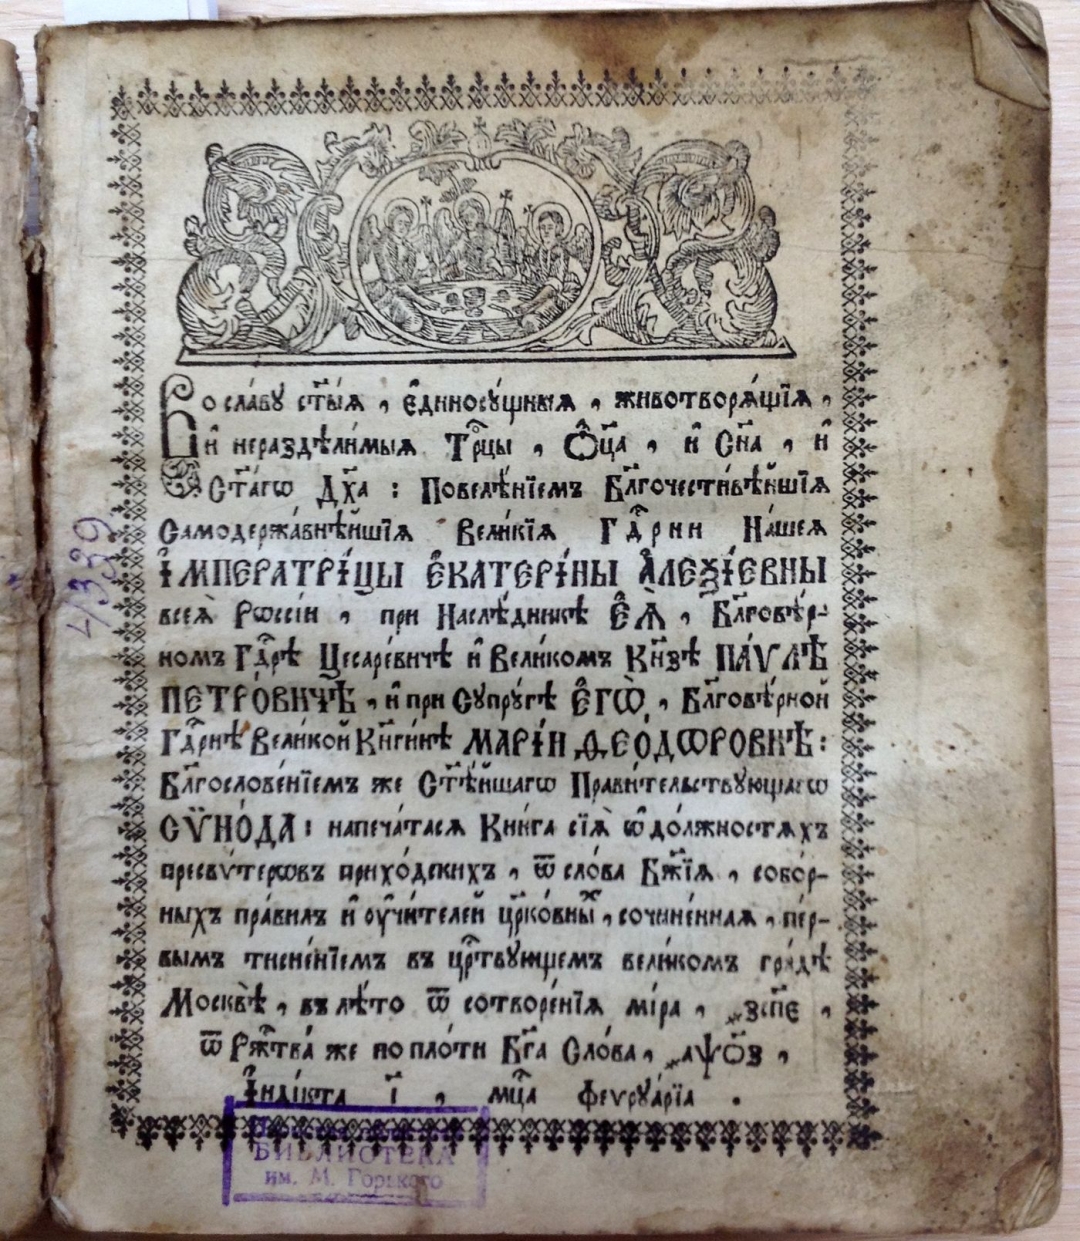 Во сла́вꙋ ст҃ы́ѧ , є҆диносꙋ́щныѧ , животворѧ́щїѧ ,
и҆ нераздѣли́мыѧ Трⷪ҇цы , Ѻ҆ц҃а̀ , и҆ Сн҃а , и҆
Ст҃а́гѡ Дх҃а : Повелѣ́нїемъ Бл҃гочести́вѣйшїѧ
Самодержа́внѣйшїѧ Вели́кїѧ Гдⷭ҇рни На́шеѧ
І҆МПЕРАТРІ́ЦЫ Є҆КАТЕРІ́НЫ А҆ЛЕѮІ́ЕВНЫ
всеѧ̀ Рѡссі́и , при Наслѣ́дникѣ Є҆Ѧ̀ , Бл҃говѣ́р-
номъ Гдⷭ҇рѣ Цесаре́вичѣ и҆ Вели́комъ Кн҃зѣ ПА́ѴЛѢ
ПЕТРО́ВИЧѢ , и҆ при Сꙋпрꙋ́гѣ Є҆ГѠ̀ , Бл҃говѣ́рной
Гдⷭ҇рнѣ Вели́кой Кн҃ги́нѣ МАРІ́И ѲЕО́ДѠРОВНѢ :
Бл҃гослове́нїемъ же Ст҃ѣ́йшагѡ Прави́тельствꙋющагѡ
СѴНО́ДА : напеча́тасѧ Кни́га сїѧ̀ ѡ҆ до́лжностѧхъ
пресвѵ́терѡвъ прихо́дскихъ , ѿ сло́ва Бж҃їѧ , собо́р-
ныхъ пра́вилъ и҆ ᲂу҆чи́телей цр҃ко́вныⷯ , сочине́ннаѧ , пе́р-
вымъ тисне́нїемъ въ црⷭ҇твꙋющемъ вели́комъ гра́дѣ
Москвѣ̀ , въ лѣ́то ѿ сотворе́нїѧ мі́ра , ҂зс҃пє ,
ѿ Ржⷭ҇тва́ же по пло́ти Бг҃а Сло́ва , ҂аѱѿз ,
І҆нді́кта і҃ , мц҃а феѵрꙋа́рїа .
4339
БИБЛИОТЕКА
им. М. Горького